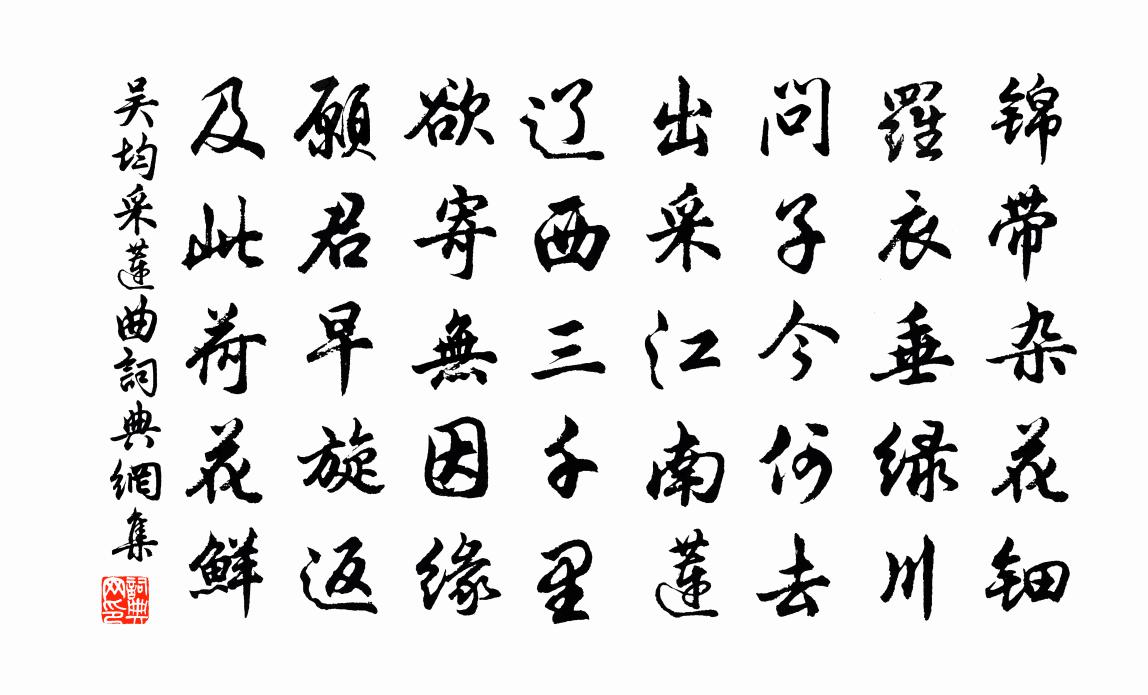 锦带杂花钿
羅衣垂绿川
问子今何去
出采江南蓮
辽西三千里
欲寄無因缘
願君早旋返
及此荷花鮮
吴均采蓮曲詞典網集
詞典
网印